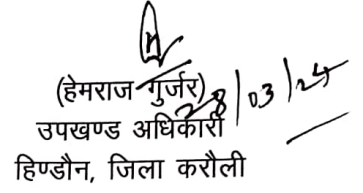 (हेमराज गुर्जर)
28/03/24
उपखण्ड अधिकारी
हिण्डौन, जिला करौली